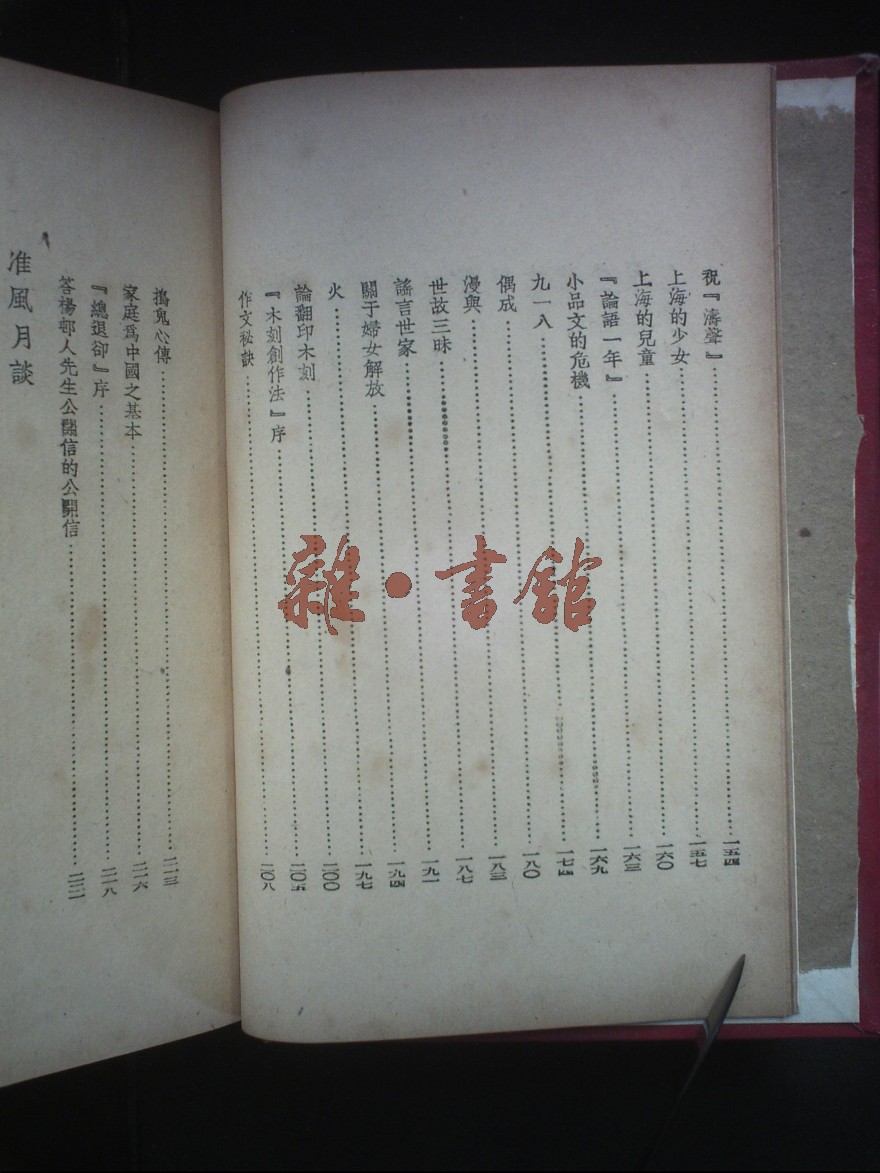 祝『濤聲』……一五四
上海的少女……一五七
上海的兒童……一六〇
『論語一年』……一六三
小品文的危機……一六九
九一八……一七四
偶成……一八〇
漫與……一八三
世故三昧……一八七
謠言世家……一九一
關于婦女解放……一九四
火……一九七
論翻印木刻……二〇〇
『木刻創作法』序……二〇五
作文秘訣……二〇八
搗鬼心傳……二一三
家庭爲中國之基本……二一六
『總退卻』序……二一八
答楊邨人先生公開信的公開信……二二一
准風月談
雜·書館